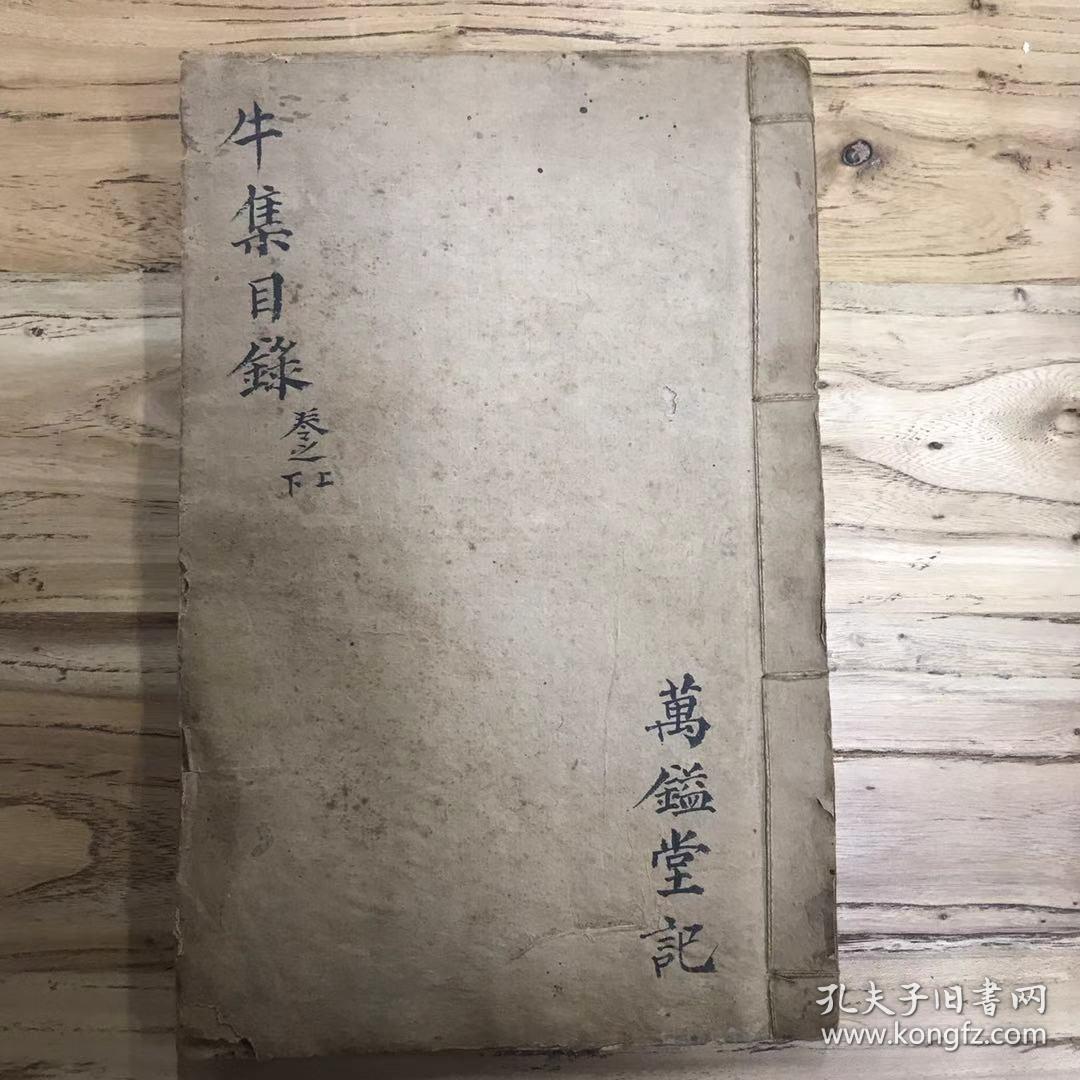 牛集目錄
卷之
上
下
萬鎰堂記
孔夫子旧書网
www.kongfz.com